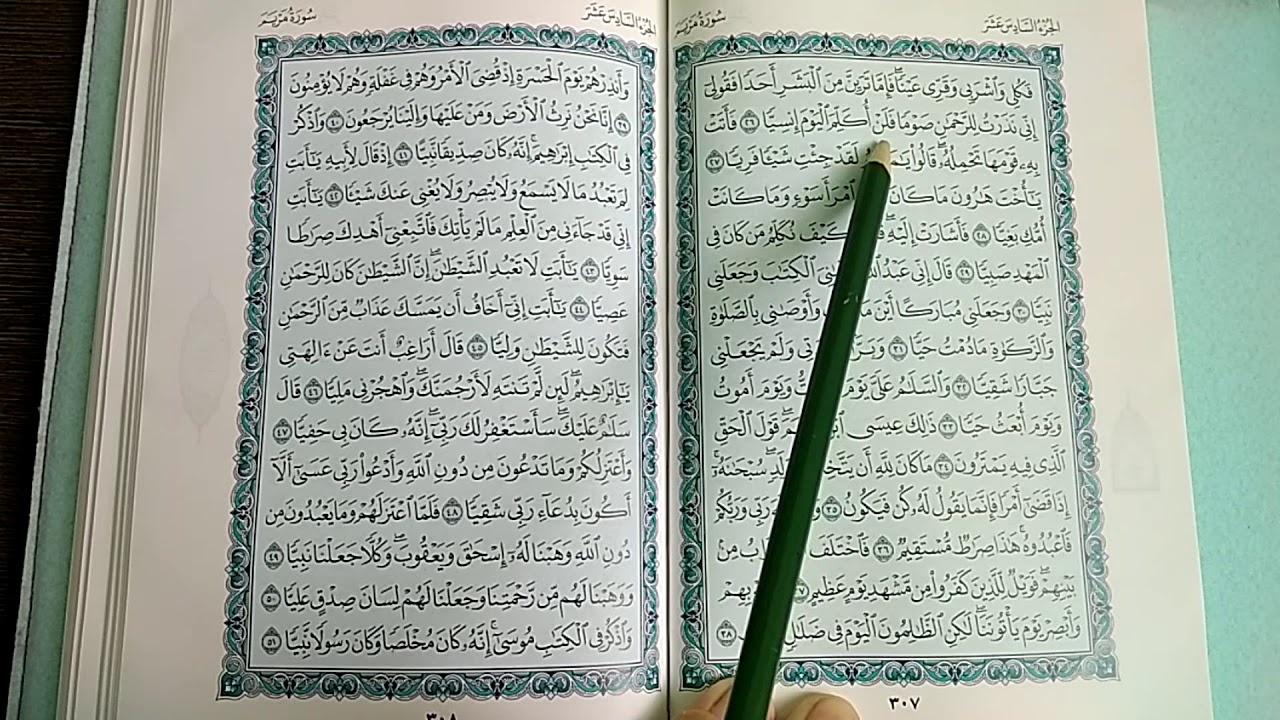 الجزء السادس عشر
سورة مريم
فَكُلِي وَاشْرَبِي وَقَرِّي عَيْنًا ۖ فَإِمَّا تَرَيِنَّ مِنَ الْبَشَرِ أَحَدًا فَقُولِي
إِنِّي نَذَرْتُ لِلرَّحْمَٰنِ صَوْمًا فَلَنْ أُكَلِّمَ الْيَوْمَ إِنسِيًّا ٢٦ فَأَتَتْ
بِهِ قَوْمَهَا تَحْمِلُهُ ۖ قَالُوا لَقَدْ جِئْتِ شَيْئًا فَرِيًّا ٢٧
يَا أُخْتَ هَارُونَ مَا كَانَ امْرَأَ سَوْءٍ وَمَا كَانَتْ
أُمُّكِ بَغِيًّا ٢٨ فَأَشَارَتْ إِلَيْهِ ۖ كَيْفَ نُكَلِّمُ مَن كَانَ فِي
الْمَهْدِ صَبِيًّا ٢٩ قَالَ إِنِّي عَبْدُ الْكِتَابَ وَجَعَلَنِي
نَبِيًّا ٣٠ وَجَعَلَنِي مُبَارَكًا أَيْنَ وَأَوْصَانِي بِالصَّلَاةِ
وَالزَّكَاةِ مَا دُمْتُ حَيًّا ٣١ وَلَمْ يَجْعَلْنِي
جَبَّارًا شَقِيًّا ٣٢ وَالسَّلَامُ عَلَيَّ يَوْمَ وَيَوْمَ أَمُوتُ
وَيَوْمَ أُبْعَثُ حَيًّا ٣٣ ذَٰلِكَ عِيسَى قَوْلَ الْحَقِّ
الَّذِي فِيهِ يَمْتَرُونَ ٣٤ مَا كَانَ لِلَّهِ أَن سُبْحَانَهُ ۚ
إِذَا قَضَىٰ أَمْرًا فَإِنَّمَا يَقُولُ لَهُ كُن فَيَكُونُ ٣٥ رَبِّي وَرَبُّكُمْ
فَاعْبُدُوهُ ۚ هَٰذَا صِرَاطٌ مُّسْتَقِيمٌ ٣٦ فَاخْتَلَفَ مِن
بَيْنِهِمْ ۖ فَوَيْلٌ لِّلَّذِينَ كَفَرُوا مِن مَّشْهَدِ يَوْمٍ عَظِيمٍ ٣٧
وَأَبْصِرْ يَوْمَ يَأْتُونَنَا ۖ لَٰكِنِ الظَّالِمُونَ الْيَوْمَ فِي ضَلَالٍ ٣٨
٣٠٧
الجزء السادس عشر
سورة مريم
وَأَنذِرْهُمْ يَوْمَ الْحَسْرَةِ إِذْ قُضِيَ الْأَمْرُ وَهُمْ فِي غَفْلَةٍ وَهُمْ لَا يُؤْمِنُونَ
٣٩ إِنَّا نَحْنُ نَرِثُ الْأَرْضَ وَمَنْ عَلَيْهَا وَإِلَيْنَا يُرْجَعُونَ ٤٠ وَاذْكُرْ
فِي الْكِتَابِ إِبْرَاهِيمَ ۚ إِنَّهُ كَانَ صِدِّيقًا نَّبِيًّا ٤١ إِذْ قَالَ لِأَبِيهِ يَا أَبَتِ
لِمَ تَعْبُدُ مَا لَا يَسْمَعُ وَلَا يُبْصِرُ وَلَا يُغْنِي عَنكَ شَيْئًا ٤٢ يَا أَبَتِ
إِنِّي قَدْ جَاءَنِي مِنَ الْعِلْمِ مَا لَمْ يَأْتِكَ فَاتَّبِعْنِي أَهْدِكَ صِرَاطًا
سَوِيًّا ٤٣ يَا أَبَتِ لَا تَعْبُدِ الشَّيْطَانَ ۖ إِنَّ الشَّيْطَانَ كَانَ لِلرَّحْمَٰنِ
عَصِيًّا ٤٤ يَا أَبَتِ إِنِّي أَخَافُ أَن يَمَسَّكَ عَذَابٌ مِّنَ الرَّحْمَٰنِ
فَتَكُونَ لِلشَّيْطَانِ وَلِيًّا ٤٥ قَالَ أَرَاغِبٌ أَنتَ عَنْ آلِهَتِي
يَا إِبْرَاهِيمُ ۖ لَئِن لَّمْ تَنتَهِ لَأَرْجُمَنَّكَ ۖ وَاهْجُرْنِي مَلِيًّا ٤٦ قَالَ
سَلَامٌ عَلَيْكَ ۖ سَأَسْتَغْفِرُ لَكَ رَبِّي ۖ إِنَّهُ كَانَ بِي حَفِيًّا ٤٧
وَأَعْتَزِلُكُمْ وَمَا تَدْعُونَ مِن دُونِ اللَّهِ وَأَدْعُو رَبِّي عَسَىٰ أَلَّا
أَكُونَ بِدُعَاءِ رَبِّي شَقِيًّا ٤٨ فَلَمَّا اعْتَزَلَهُمْ وَمَا يَعْبُدُونَ مِن
دُونِ اللَّهِ وَهَبْنَا لَهُ إِسْحَاقَ وَيَعْقُوبَ ۖ وَكُلًّا جَعَلْنَا نَبِيًّا ٤٩
وَوَهَبْنَا لَهُم مِّن رَّحْمَتِنَا وَجَعَلْنَا لَهُمْ لِسَانَ صِدْقٍ عَلِيًّا ٥٠
وَاذْكُرْ فِي الْكِتَابِ مُوسَىٰ ۚ إِنَّهُ كَانَ مُخْلَصًا وَكَانَ رَسُولًا نَّبِيًّا ٥١
٣٠٨